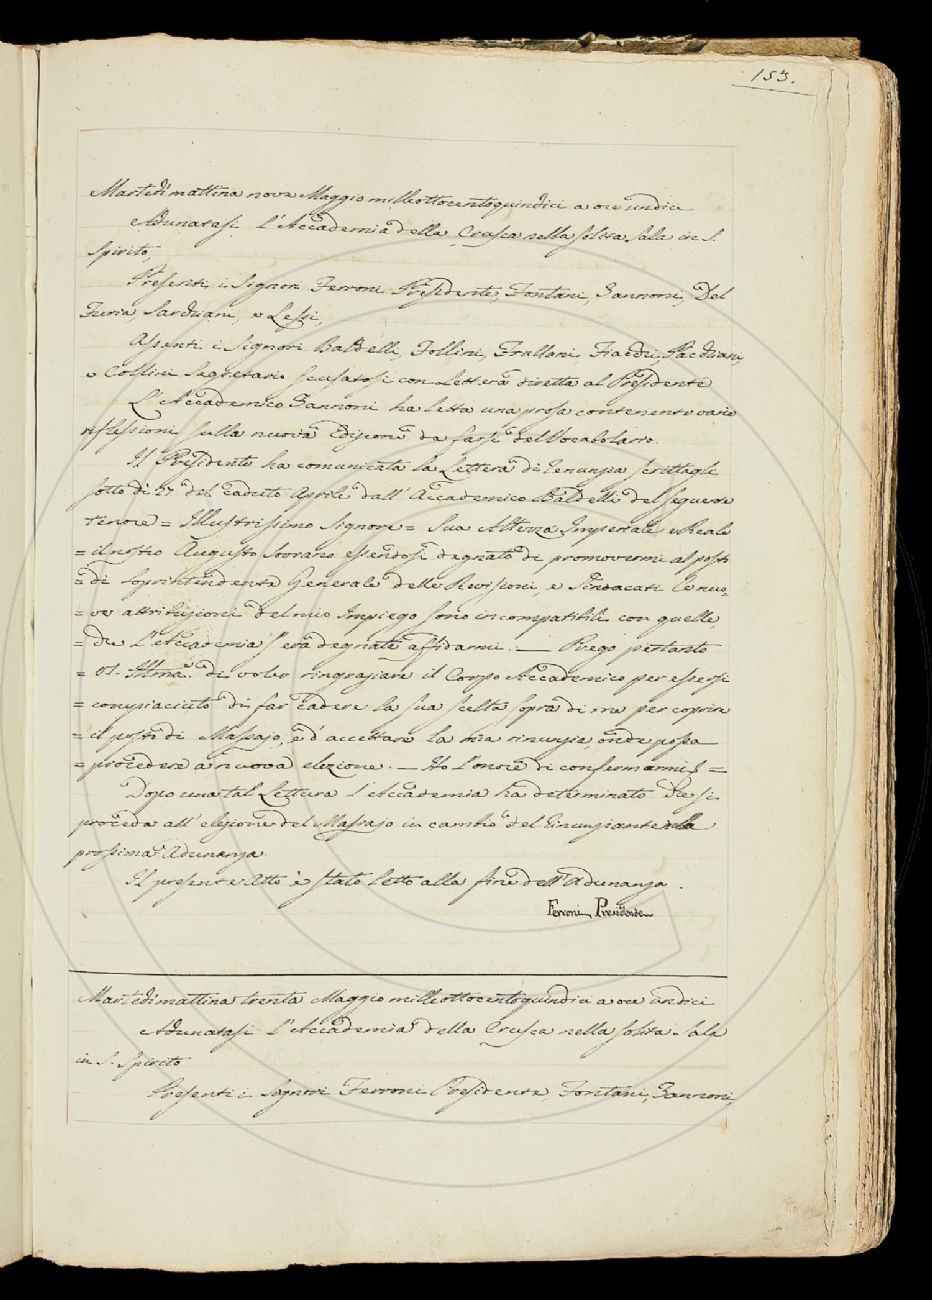 153.
Martedì mattina nove Maggio milleottocentoquindici a ore undici
Adunatasi l'Accademia della Crusca nella solita sala in S.
Spirito,
Presenti i Signori Ferroni Presidente, Fontani, Zannoni, Del
Furia, Sarchiani, e Lessi,
Assenti i Signori Baldelli, Follini, Frullani, Fiacchi, Pacchiani,
e Collini Segretario scusatosi con Lettera diretta al Presidente
L'Accademico Zannoni ha letta una prosa contenente varie
riflessioni sulla nuova Edizione da farsi del Vocabolario.
Il Presidente ha comunicata la Lettera di renunzia scrittagli
sotto dì 27 del caduto Aprile dall'Accademico Baldelli del seguente
tenore = Illustrissimo Signore = Sua Altezza Imperiale e Reale
= il nostro Augusto Sovrano essendosi degnato di promovermi al posto
= di Soprintendente Generale delle Revisioni, e Sindacati le nuo-
= ve attribuzioni del mio Impiego sono incompatibili con quelle,
= che l'Accademia s'era degnata affidarmi. — Prego pertanto
= VS. Illma. di voler ringraziare il Corpo Accademico per essersi
= compiaciuto di far cadere la sua scelta sopra di me per coprire
= il posto di Massajo, e d'accettare la mia rinunzia onde possa
= procedere a nuova elezione. — Ho l'onore di confermarmi =
Dopo una tal Lettura l'Accademia ha determinato che si
proceda all'elezione del Massajo in cambio del renunziante nella
prossima Adunanza.
Il presente Atto è stato letto alla fine dell'Adunanza.
Ferroni Presidente
Martedì mattina trenta Maggio milleottocentoquindici a ore undici
Adunatasi l'Accademia della Crusca nella solita Sala
in S. Spirito
Presenti i Signori Ferroni Presidente, Fontani, Zannoni,